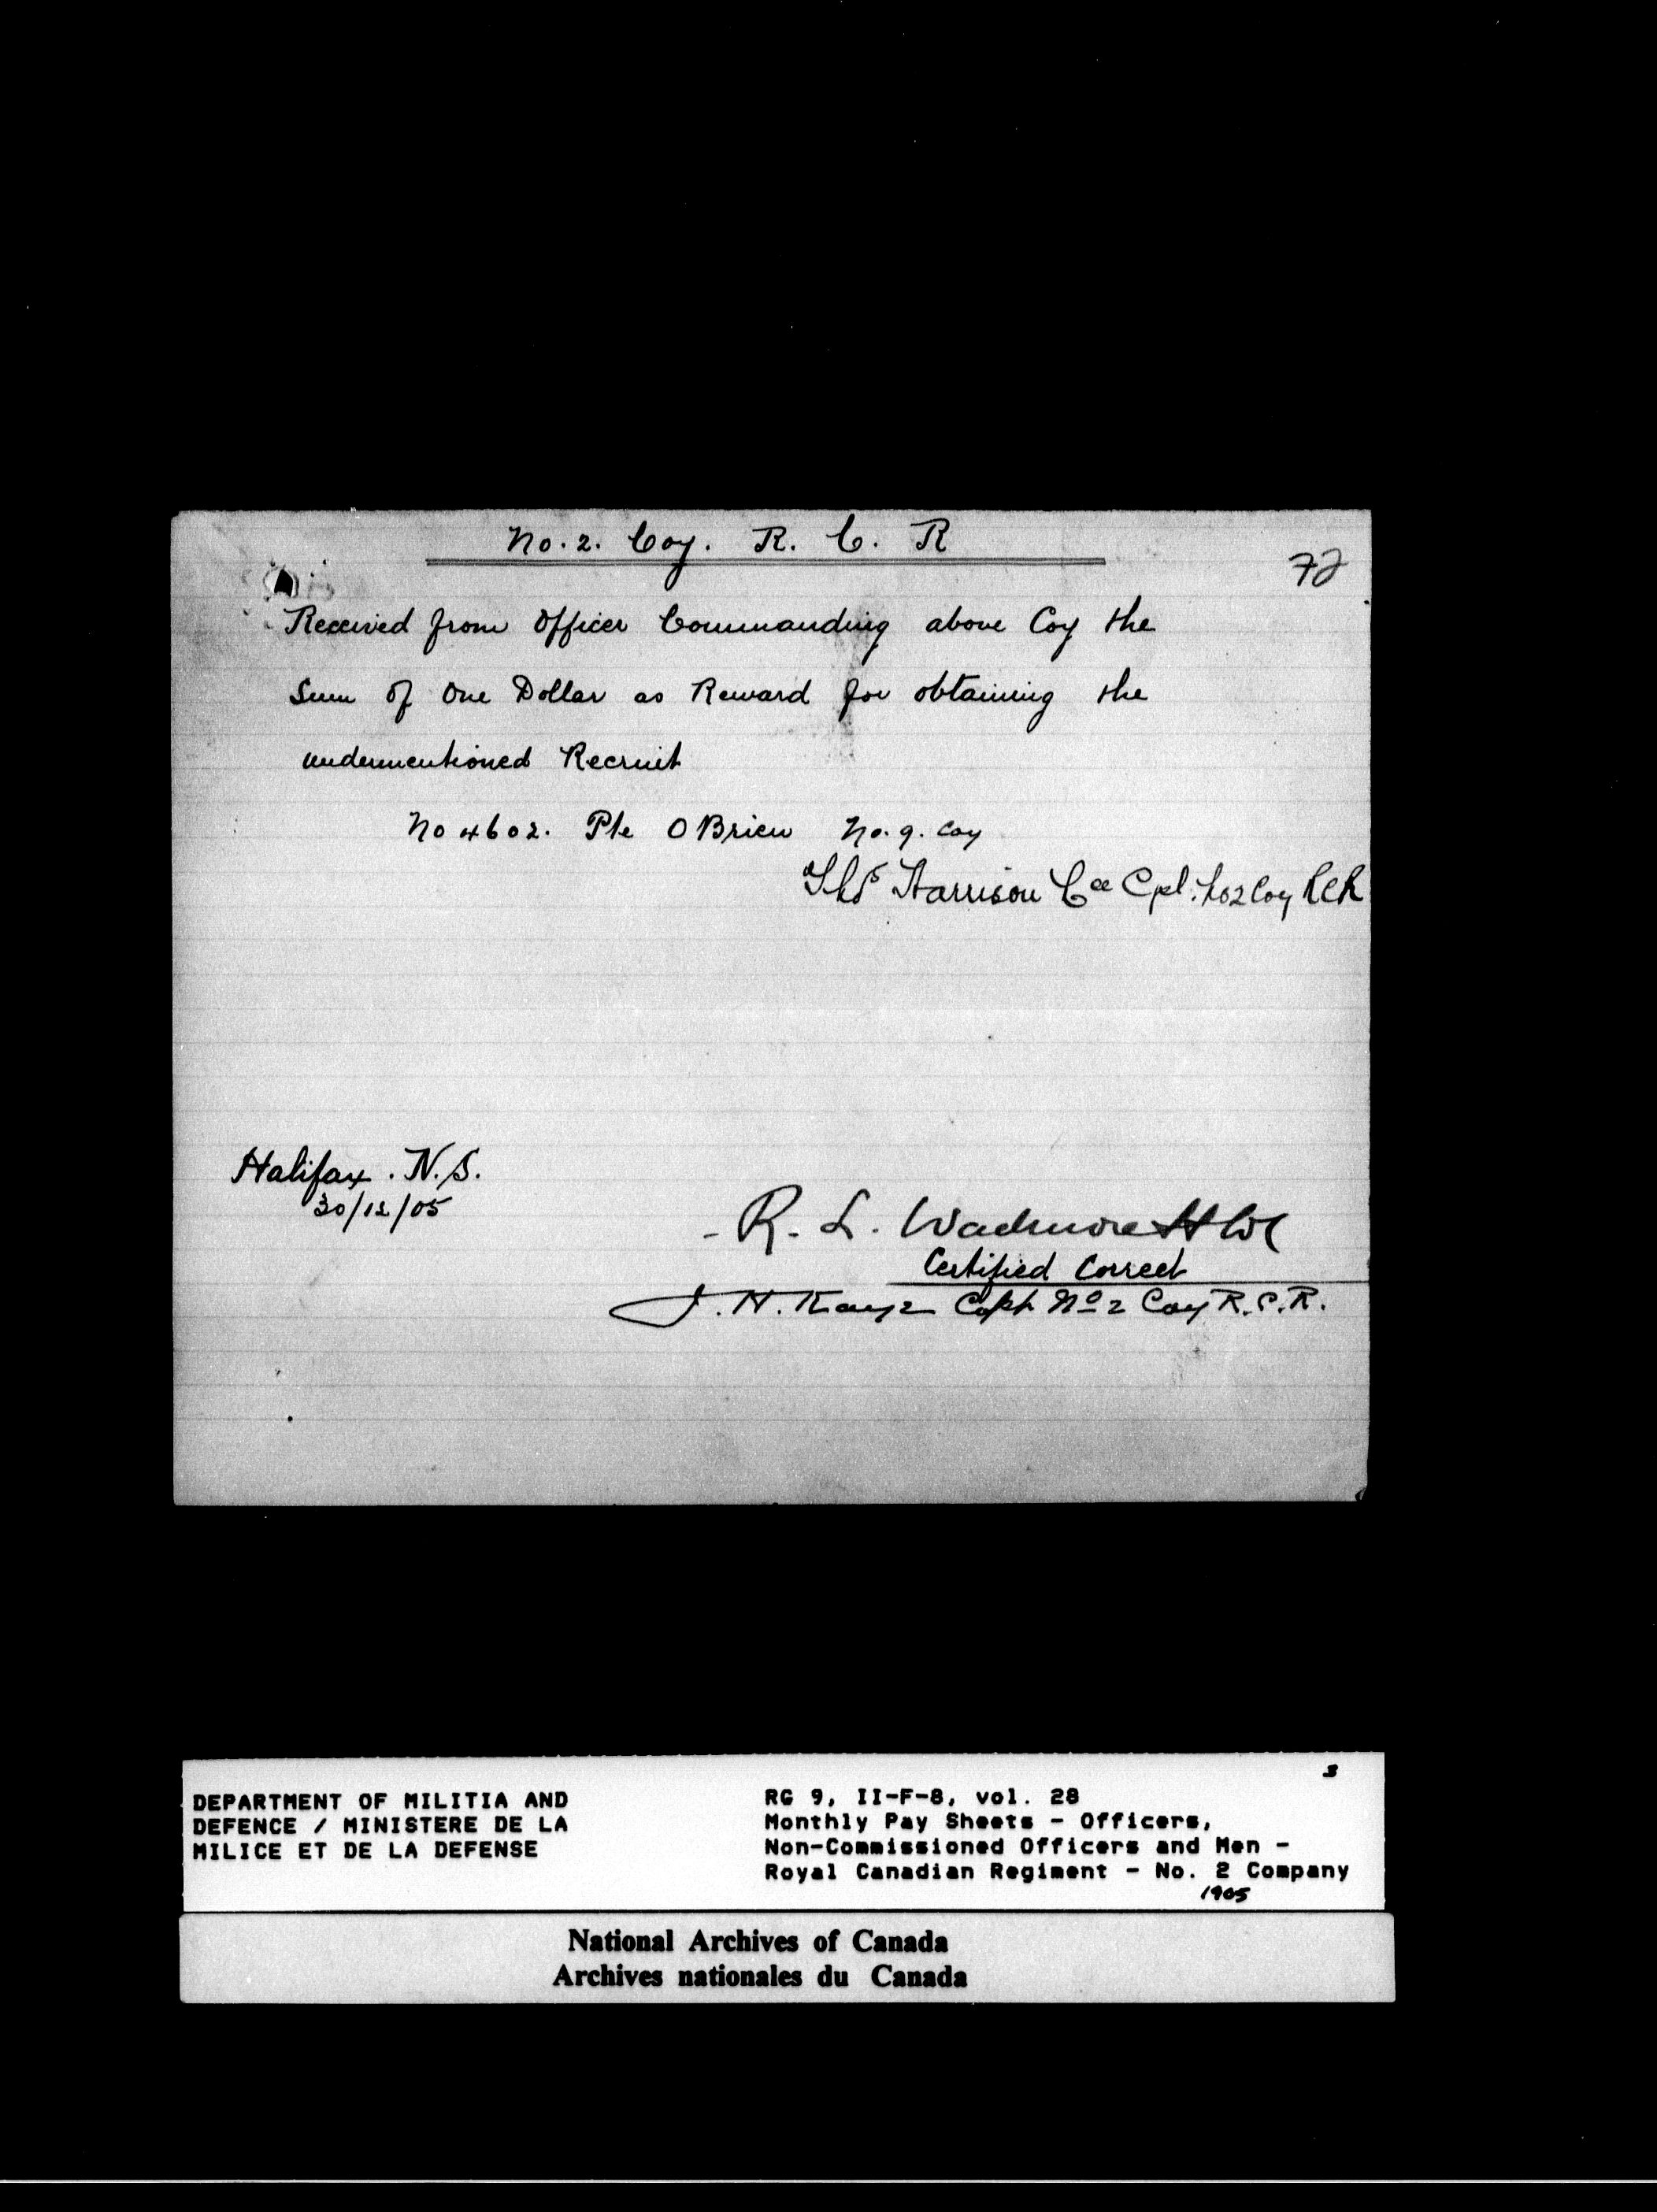 No. 2. Coy. R. C. R
72
Received from Officer Commanding above Coy the
Sum of One Dollar as Reward for obtaining the
undermentioned Recruit
No 4602. Pte O Brien No. 9. Coy
Thos Harrison Cpl. No 2 Coy RCR
Halifax. N.S.
30/12/05
R. L. Wadmore
Certified Correct
J. H. Kaye Capt No 2 Coy R.C.R.
3
DEPARTMENT OF MILITIA AND
DEFENCE / MINISTERE DE LA
MILICE ET DE LA DEFENSE
RG 9, II-F-8, vol. 28
Monthly Pay Sheets - Officers,
Non-Commissioned Officers and Men -
Royal Canadian Regiment - No. 2 Company
1905
National Archives of Canada
Archives nationales du Canada